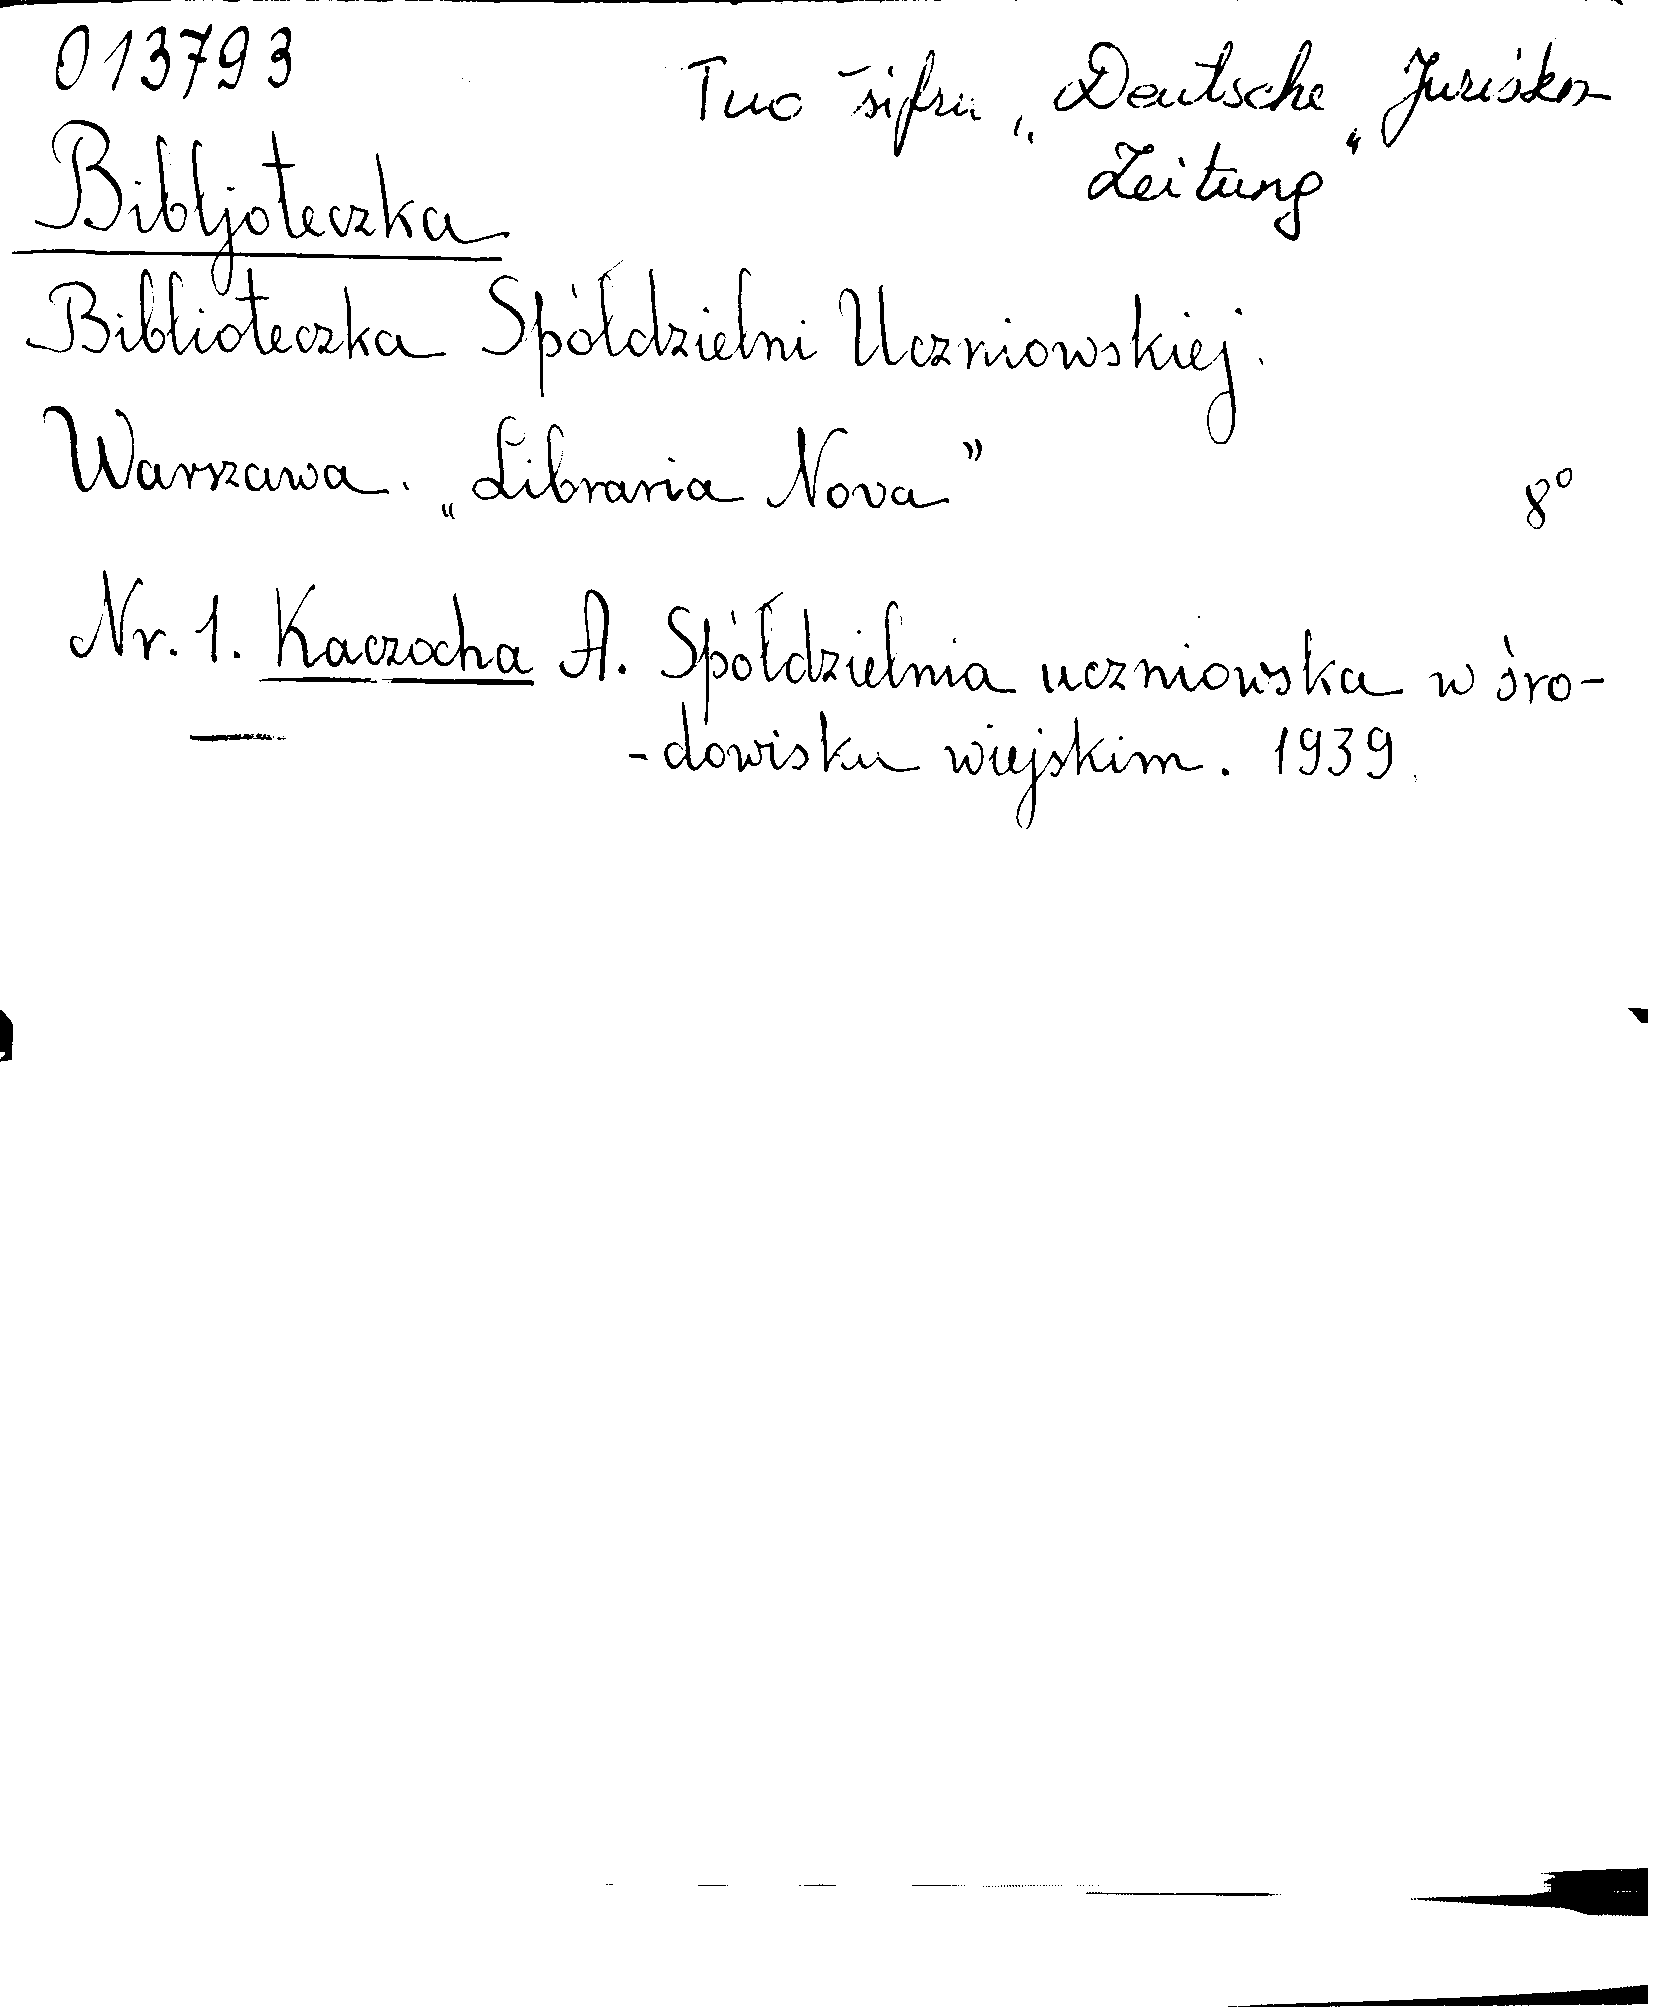 013793
Tuo šifru „Deutsche Juristen
Zeitung“
Bibljoteczka
Biblioteczka Spółdzielni Uczniowskiej.
Warszawa. „Libraria Nova” 8°
Nr. 1. Kaczocha A. Spółdzielnia uczniowska w śro-
-dowisku wiejskim. 1939.